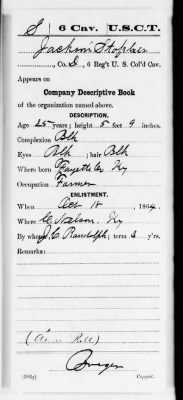 S | 6 Cav. | U.S.C.T.
Jackson Stopher
, Co. I, 6 Reg't U. S. Col'd Cav.
Appears on
Company Descriptive Book
of the organization named above.
DESCRIPTION.
Age 25 years; height 5 feet 9 inches.
Complexion Blk
Eyes Blk ; hair Blk
Where born Fayette Co, Ky
Occupation Farmer
ENLISTMENT.
When Oct 18 , 1864.
Where C. Nelson, Ky
By whom J.C. Randolph ; term 3 y'rs.
Remarks:
Roll)
(383g) Copyist.